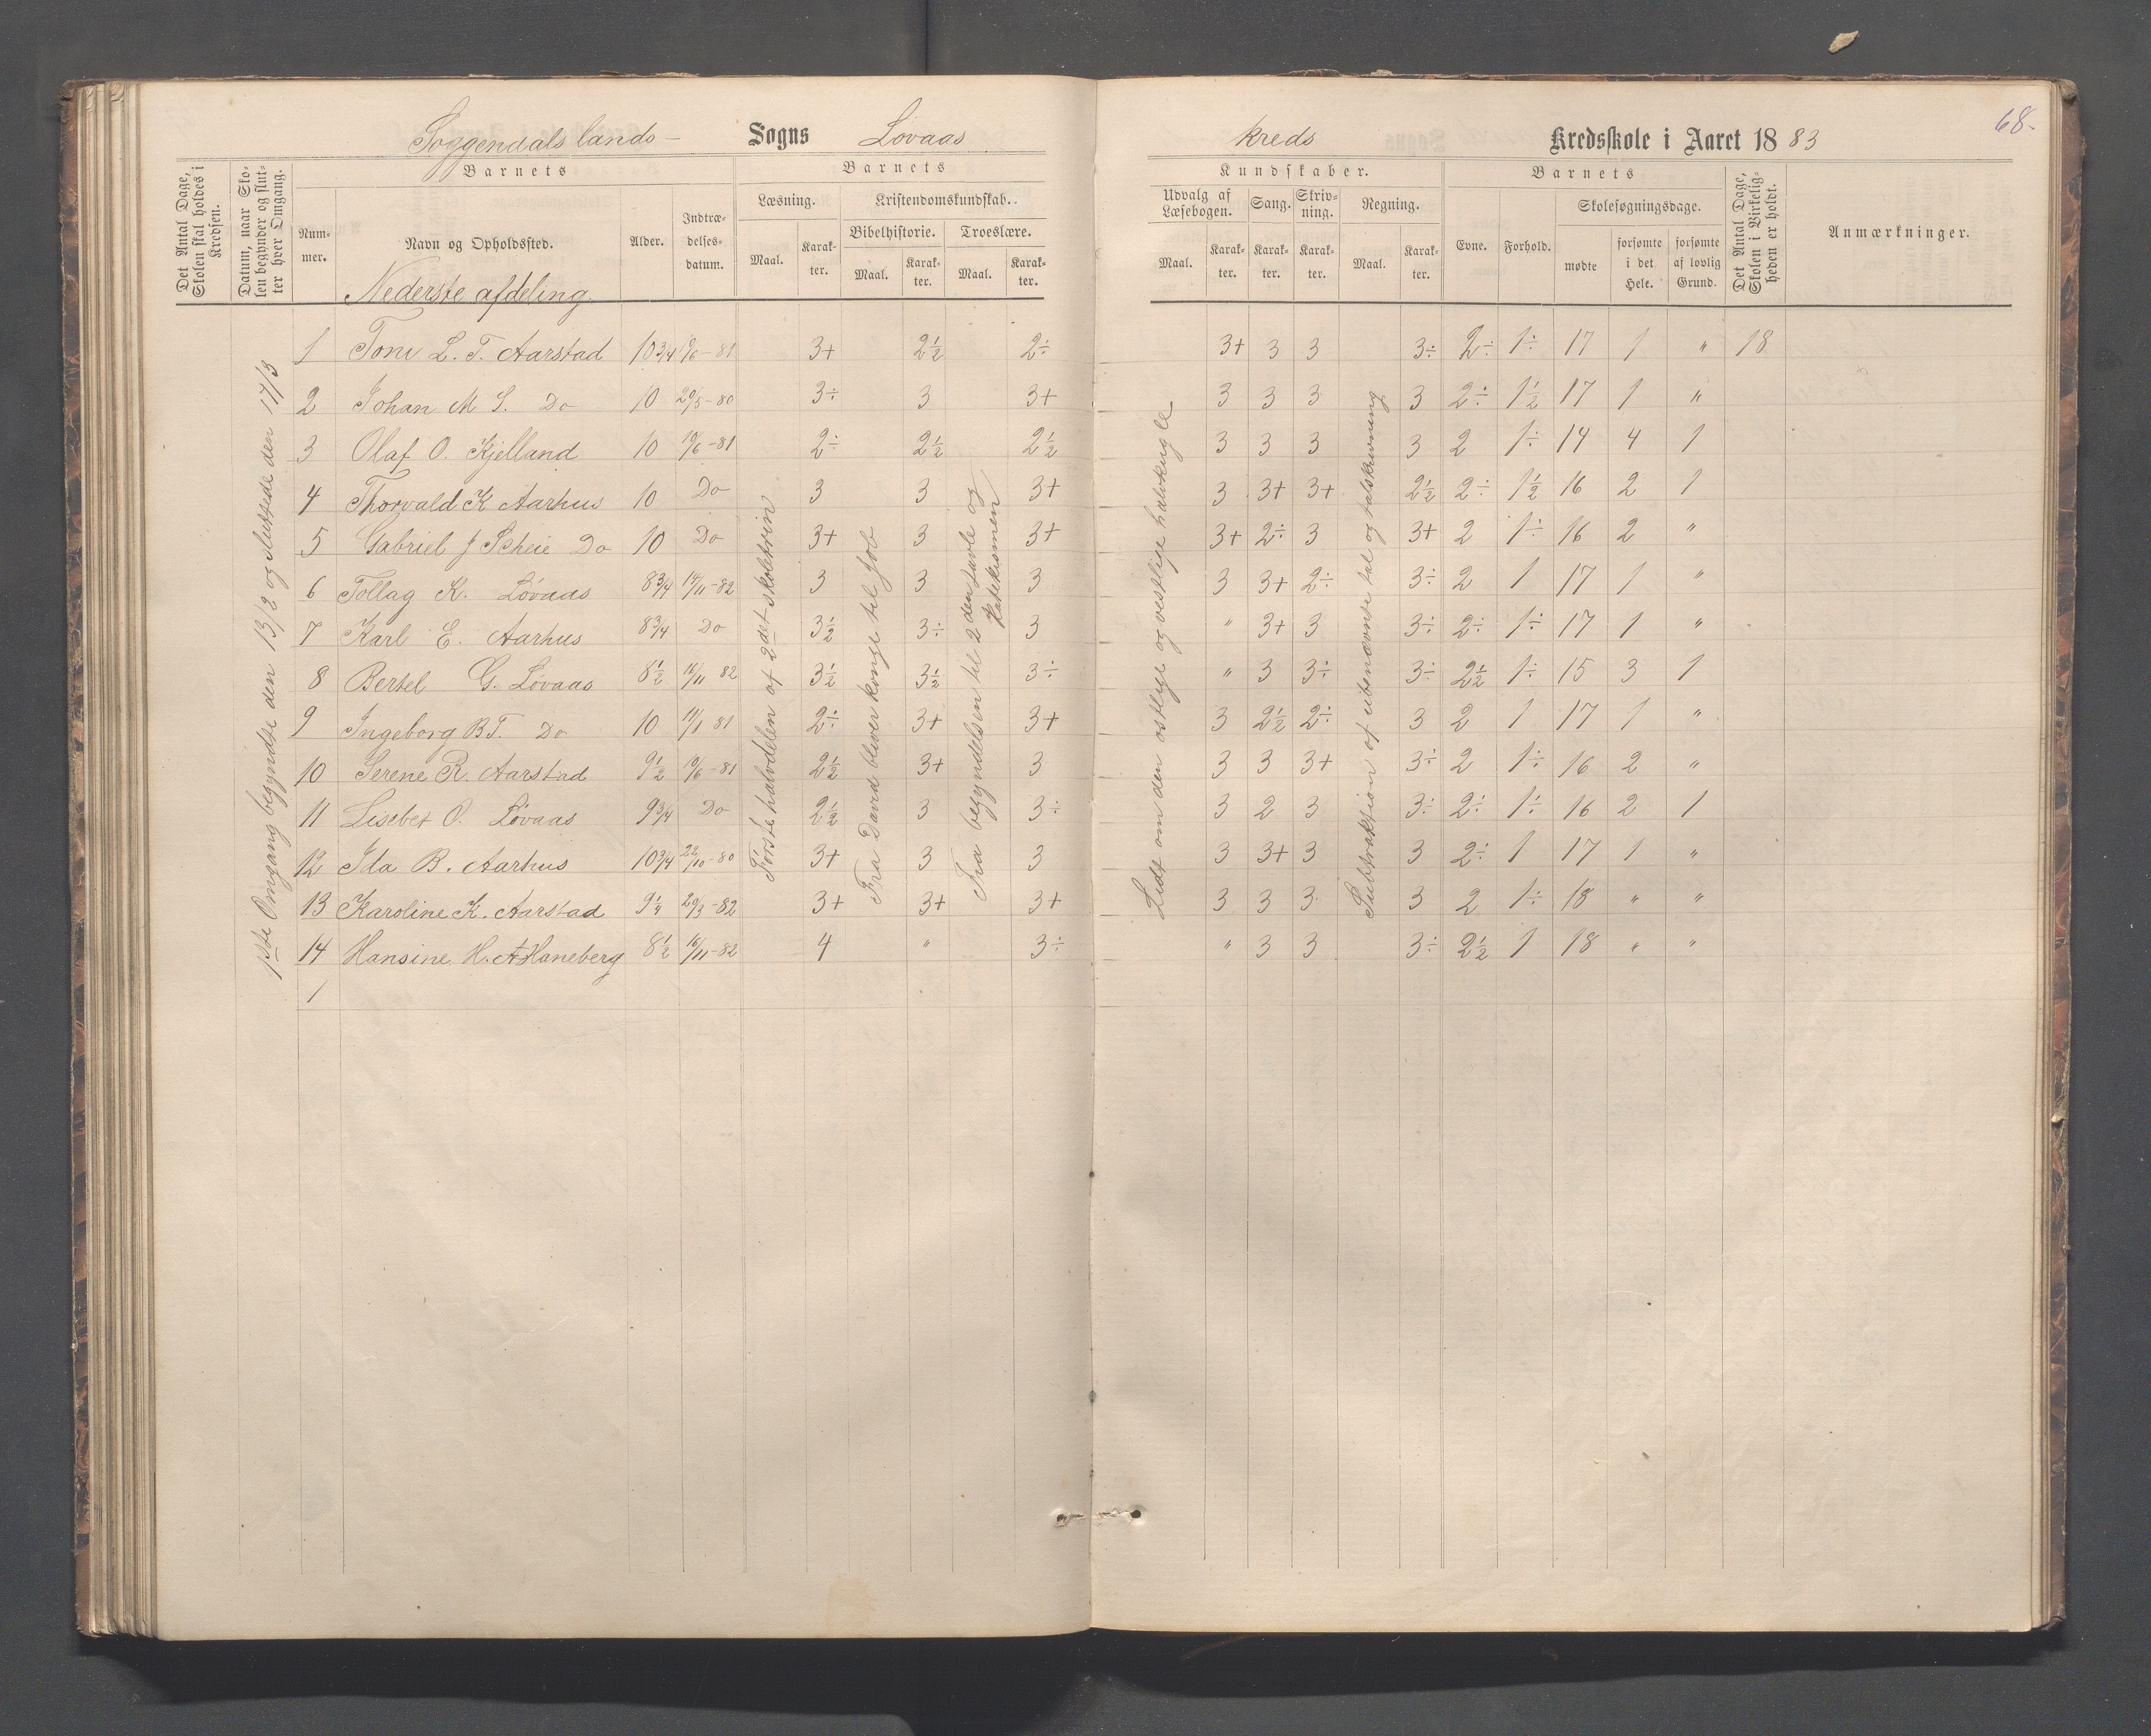 68.
Soggendals lands- Sogns Lovaas kreds Kredsskole i Aaret 1883
Det Antal Dage, Skolen skal holdes i Kredsen.
Datum, naar Skolen begynder og slutter hver Omgang.
Barnets
Nummer.
Navn og Opholdssted.
Alder.
Indtrædelses-datum.
Barnets
Læsning.
Maal.
Karakter.
Kristendomskundskab.
Bibelhistorie.
Maal.
Karakter.
Troeslære.
Maal.
Karakter.
Kundskaber.
Udvalg af Læsebogen.
Maal.
Karakter.
Sang.
Karakter.
Skrivning.
Karakter.
Regning.
Maal.
Karakter.
Barnets
Evne.
Forhold.
Skolesøgningsdage.
mødte
forsømte i det Hele.
forsømte af lovlig Grund.
Det Antal Dage, Skolen i Virkeligheden er holdt.
Anmærkninger.
Nederste afdeling.
1ste Omgang begyndte den 13/2 og sluttede den 17/3
Første halvdelen af 2det skoletrin
Fra David bliver konge til Job
Fra begyndelsen til 2den tavle og Katekismen
Lidt om den østlige og vestlige halvkugle
Subtraktion af ubenævnte tal og talskrivning
1 Toni L. T. Aarstad 10 3/4 19/6-81 3+ 2½ 2÷ 3+ 3 3 3÷ 2÷ 1÷ 17 1 " 18
2 Johan M S. Do 10 20/5-80 3÷ 3 3+ 3 3 3 3 2÷ 1½ 17 1 "
3 Olaf O. Kjelland 10 19/6-81 2÷ 2½ 2½ 3 3 3 3 2 1÷ 14 4 1
4 Thorvald K Aarhus 10 Do 3 3 3+ 3 3+ 3+ 2½ 2÷ 1½ 16 2 1
5 Gabriel J Scheie Do 10 Do 3+ 3 3+ 3+ 2÷ 3 3+ 2 1÷ 16 2 "
6 Tollag K. Løvaas 8 3/4 14/11-82 3 3 3 3 3+ 2÷ 3÷ 2 1 17 1 "
7 Karl E. Aarhus 8 3/4 Do 3½ 3÷ 3 " 3+ 3 3÷ 2÷ 1÷ 17 1 "
8 Bertel G. Løvaas 8½ 16/11 82 3½ 3½ 3÷ " 3 3÷ 3÷ 2½ 1÷ 15 3 1
9 Ingeborg B T. Do 10 11/1 81 2÷ 3+ 3+ 3 2½ 2÷ 3 2 1 17 1 "
10 Serene R. Aarstad 9½ 19/6-81 2½ 3+ 3 3 3 3+ 3÷ 2 1÷ 16 2 "
11 Lisebet O. Løvaas 9 3/4 Do 2½ 3 3÷ 3 2 3 3÷ 2÷ 1÷ 16 2 1
12 Ida B. Aarhus 10 3/4 22/10-80 3+ 3 3 3 3+ 3 3 2÷ 1 17 1 "
13 Karoline K. Aarstad 9 1/4 20/3-82 3+ 3+ 3+ 3 3 3 3 2 1÷ 18 " "
14 Hansine H. Haneberg 8½ 16/11-82 4 " 3÷ " 3 3 3÷ 2½ 1 18 " "
1